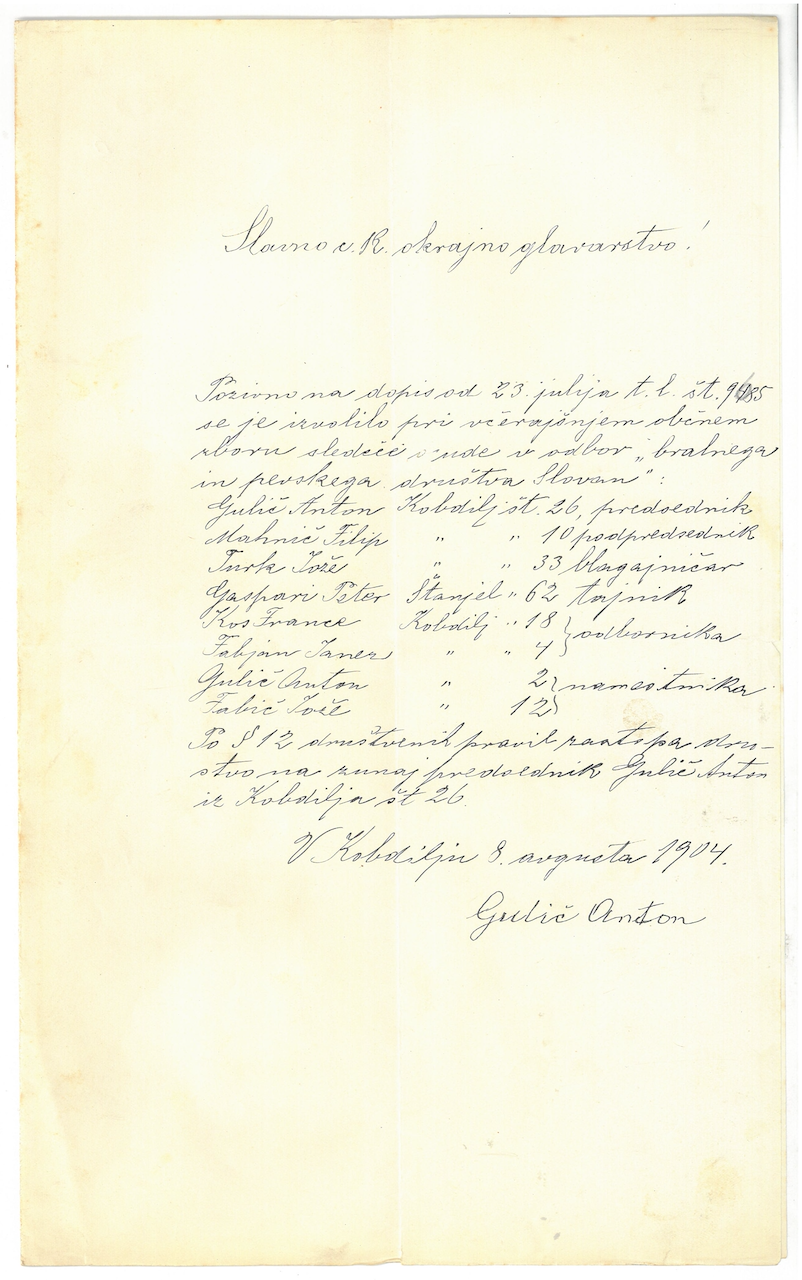 Slavno c. k. okrajno glavarstvo!
Pozivno na dopis od 23. julija t. l. št.
se je izvolilo pri včerajšnjem občnem
zboru sledeče ude v odbor „bralnega
in pevskega društva Slovan“:
Gulič Anton Kobdilj št. 26, predsednik
Mahnič Filip „ „ 10 podpredsednik
Turk Jože „ „ 33 blagajničar
Gaspari Peter Štanjel „ 62 tajnik
Kos France Kobdilj „ 18 } odbornika
Fabjan Janez „ „ 4 }
Gulič Anton „ 2 } namestnika
Fabič Jože „ 12 }
Po § 12 društvenih pravil zastopa dru-
štvo na zunaj predsednik Gulič Anton
iz Kobdilja št 26.
V Kobdilju 8. avgusta 1904.
Gulič Anton